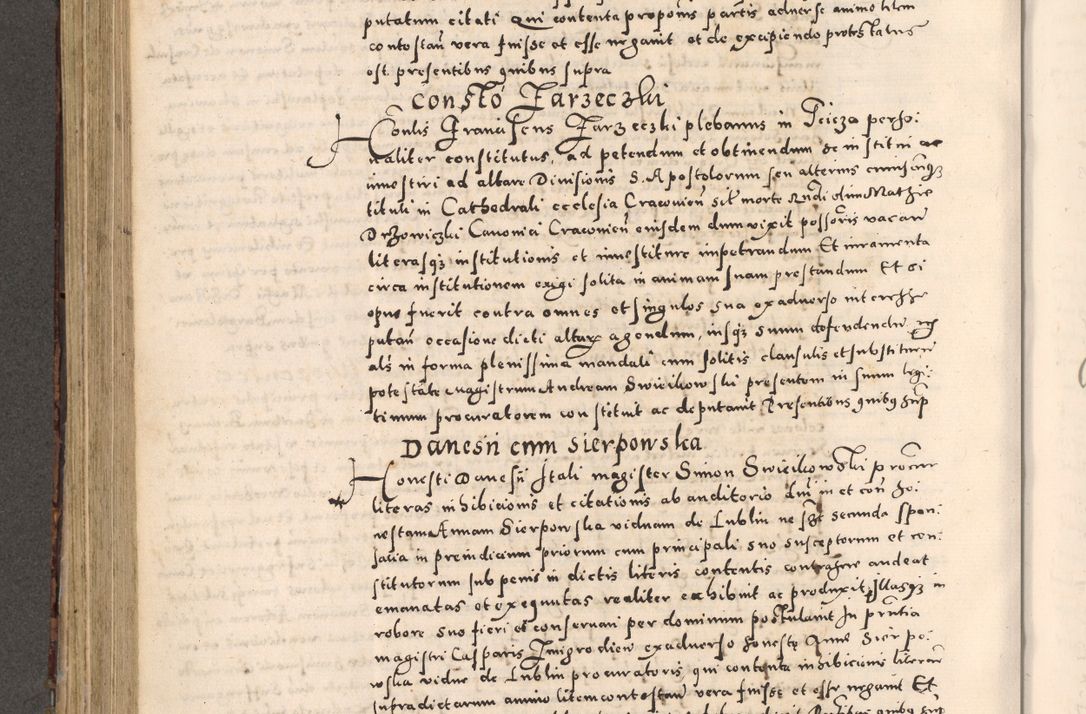 putatum citati Qui contenta proponis partis adverse animo litem
contestan vera fuisse et esse negavit et de excipiendo protestatus
est presentibus quibus supra
Consto Jarzeczki
Honlis Franciscus Jarzeczki plebanus in perso:
naliter constitutus, ad petendum et obtinendum se institui ac
investiri ad altare Divisionis S. Apostolorum seu alterius cuiusuisque
tituli in Cathedrali ecclesia Cracovien sit morte Rndi olim Mathie
Drzowiczki Canonici Cracovien eiusdem dum vixit possoris vacan
literasque institutionis et investiture impetrandum Et iuramenta
circa institutionem exigi solita in animam suam prestandum Et si
opus fuerit contra omnes et singulos sua exadverso interesse
putan occasione dicti altaris agendum, ipsumque suum defendendum
als in forma plenissima mandati cum solitis clausulis et substituendi
potestate Magistrum Andream Swiecikowski presentem in suum legi:
timum procuratorem constituit ac deputavit Presentibus quibus sup
Danesii cum Sierpowska
Honesti Danesii Itali magister Simon Swiecikowski procur
literas inhibicionis et citationis ab auditorio Dni in et con ho:
nestam Annam Sierpowska viduam de Lublin ne secunda
in preiudicium priorum cum principali suo susceptorum et con:
stitutorum sub penis in dictis literis contentis contrahere audeat
emanatas et exequutas realiter exhibuit ac produxit Illasque in
robore suo fieri et conservari per dominum postulavit In pntia
magistri Casparis exadverso honeste Anne Sierpo:
wska vidue de Lublin procuratoris qui contenta inhibicionis literarum
supradictarum animo litem contestan vera fuisse et esse negavit Et
quibus sup